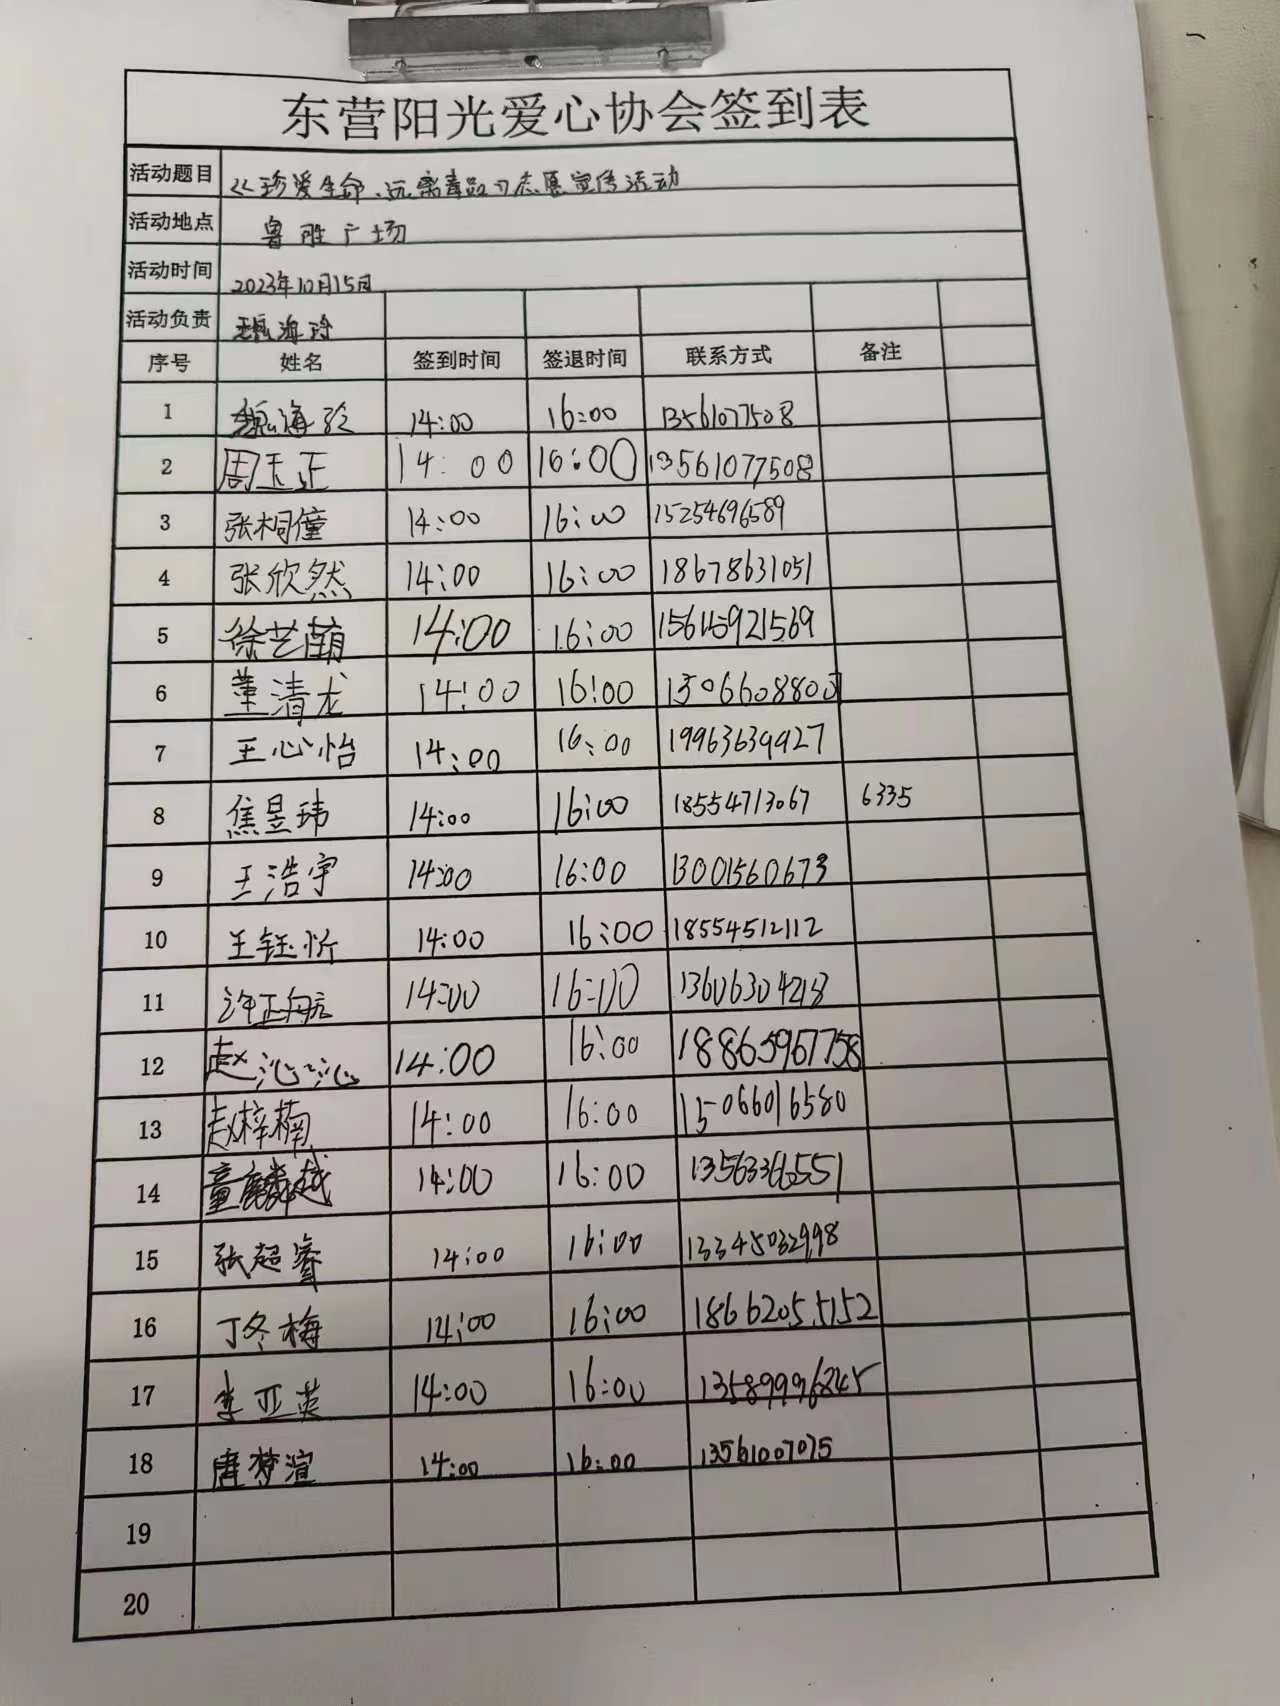 东营阳光爱心协会签到表
活动题目 《珍爱生命、远离毒品》志愿宣传活动
活动地点 鲁胜广场
活动时间 2023年10月15日
活动负责 魏海玲
序号 姓名 签到时间 签退时间 联系方式 备注
1 魏海玲 14:00 16:00 13561077508
2 周玉正 14:00 16:00 13561077508
3 张桐僮 14:00 16:00 15254696589
4 张欣然 14:00 16:00 18678631051
5 徐艺萌 14:00 16:00 15615921569
6 董清龙 14:00 16:00
7 王心怡 14:00 16:00 19963639927
8 焦昱玮 14:00 16:00 18554713067 6335
9 王浩宇 14:00 16:00 13001560673
10 王钰忻 14:00 16:00 18554512112
11 许正航 14:00 16:00 13606304218
12 赵沁沁 14:00 16:00 18865967758
13 赵梓楠 14:00 16:00 15066016580
14 童麟越 14:00 16:00 13563366551
15 张超睿 14:00 16:00 13345032998
16 丁冬梅 14:00 16:00 18662055152
17 李亚英 14:00 16:00 13589996845
18 唐梦渲 14:00 16:00 13561007075
19
20